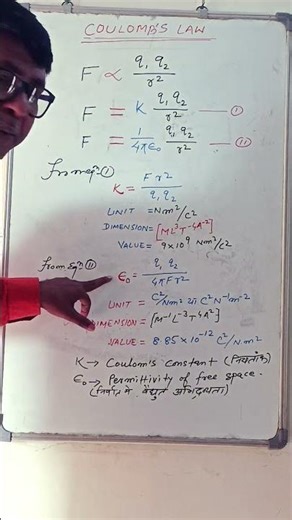 COULOMB'S LAW
F ∝ q₁ q₂ / r²
F = K q₁ q₂ / r² — ①
F = 1/4πϵ₀ q₁ q₂ / r² — ⑪
From eqⁿ ①
K = F r² / q₁ q₂
UNIT = Nm²/c²
DIMENSION = [ML³T⁻⁴A⁻²]
VALUE = 9×10⁹ Nm²/c²
From Eqⁿ ⑪
ϵ₀ = q₁ q₂ / 4πFr²
UNIT = C²/Nm² या C²N⁻¹m⁻²
DIMENSION = [M⁻¹L⁻³T⁴A²]
VALUE = 8.85×10⁻¹² C²/N.m²
K → Coulom's constant (नियतांक)
ϵ₀ → Permittivity of free space.
(निर्वात में वैद्युत